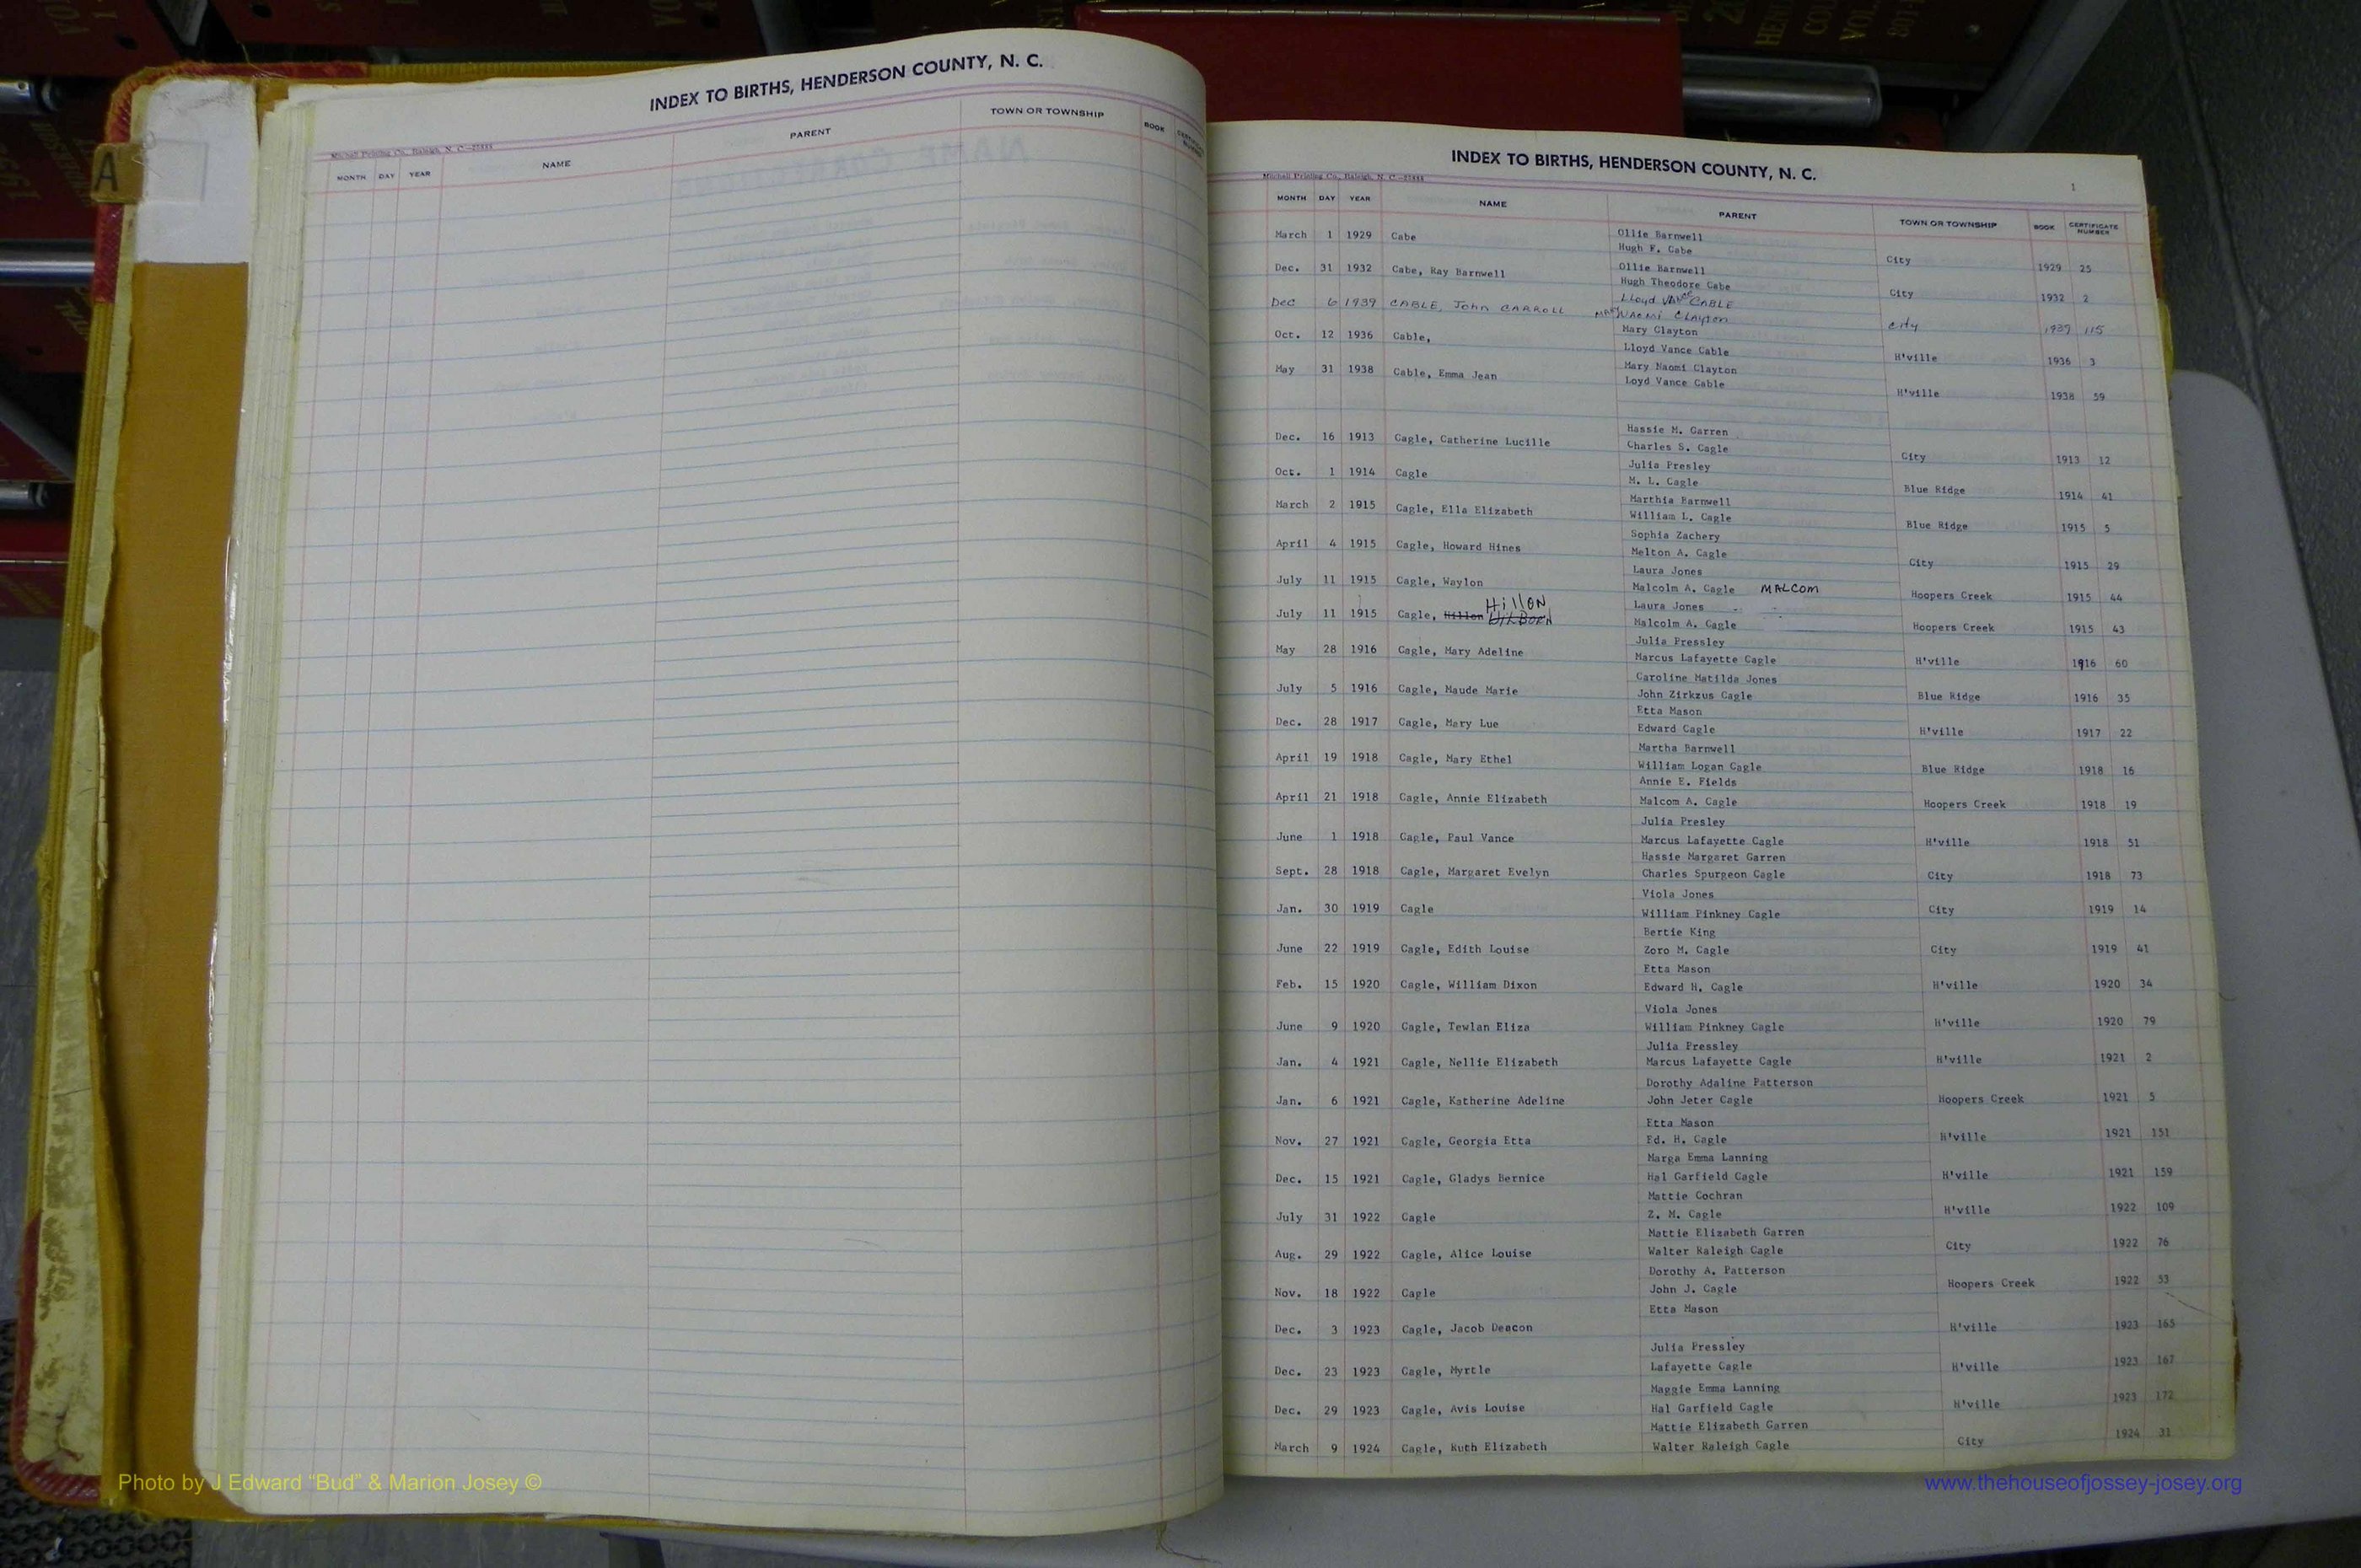 INDEX TO BIRTHS, HENDERSON COUNTY, N. C.
Mitchell Printing Co., Raleigh, N. C.
MONTH DAY YEAR NAME PARENT TOWN OR TOWNSHIP BOOK CERTIFICATE NUMBER
A
INDEX TO BIRTHS, HENDERSON COUNTY, N. C.
1
Mitchell Printing Co., Raleigh, N. C.
MONTH DAY YEAR NAME PARENT TOWN OR TOWNSHIP BOOK CERTIFICATE NUMBER
Ollie Barnwell
March 1 1929 Cabe Hugh F. Cabe City 1929 25
Ollie Barnwell
Dec. 31 1932 Cabe, Ray Barnwell Hugh Theodore Cabe City 1932 2
Lloyd Vance CABLE
Dec 6 1939 CABLE, John CARROLL MARY NAOMI CLAYTON City 1939 115
Mary Clayton
Oct. 12 1936 Cable, Lloyd Vance Cable H'ville 1936 3
Mary Naomi Clayton
May 31 1938 Cable, Emma Jean Loyd Vance Cable H'ville 1938 59
Hassie M. Garren
Dec. 16 1913 Cagle, Catherine Lucille Charles S. Cagle City 1913 12
Julia Presley
Oct. 1 1914 Cagle M. L. Cagle Blue Ridge 1914 41
Marthia Barnwell
March 2 1915 Cagle, Ella Elizabeth William L. Cagle Blue Ridge 1915 5
Sophia Zachery
April 4 1915 Cagle, Howard Hines Melton A. Cagle City 1915 29
Laura Jones
July 11 1915 Cagle, Waylon Malcolm A. Cagle MALCOM Hoopers Creek 1915 44
HillON Laura Jones
July 11 1915 Cagle, Hillon HILBORN Malcolm A. Cagle Hoopers Creek 1915 43
Julia Pressley
May 28 1916 Cagle, Mary Adeline Marcus Lafayette Cagle H'ville 1916 60
Caroline Matilda Jones
July 5 1916 Cagle, Maude Marie John Zirkzus Cagle Blue Ridge 1916 35
Etta Mason
Dec. 28 1917 Cagle, Mary Lue Edward Cagle H'ville 1917 22
Martha Barnwell
April 19 1918 Cagle, Mary Ethel William Logan Cagle Blue Ridge 1918 16
Annie E. Fields
April 21 1918 Cagle, Annie Elizabeth Malcom A. Cagle Hoopers Creek 1918 19
Julia Presley
June 1 1918 Cagle, Paul Vance Marcus Lafayette Cagle H'ville 1918 51
Hassie Margaret Garren
Sept. 28 1918 Cagle, Margaret Evelyn Charles Spurgeon Cagle City 1918 73
Viola Jones
Jan. 30 1919 Cagle William Pinkney Cagle City 1919 14
Bertie King
June 22 1919 Cagle, Edith Louise Zoro M. Cagle City 1919 41
Etta Mason
Feb. 15 1920 Cagle, William Dixon Edward H. Cagle H'ville 1920 34
Viola Jones
June 9 1920 Cagle, Tewlan Eliza William Pinkney Cagle H'ville 1920 79
Julia Pressley
Jan. 4 1921 Cagle, Nellie Elizabeth Marcus Lafayette Cagle H'ville 1921 2
Dorothy Adaline Patterson
Jan. 6 1921 Cagle, Katherine Adeline John Jeter Cagle Hoopers Creek 1921 5
Etta Mason
Nov. 27 1921 Cagle, Georgia Etta Ed. H. Cagle H'ville 1921 151
Marga Emma Lanning
Dec. 15 1921 Cagle, Gladys Bernice Hal Garfield Cagle H'ville 1921 159
Mattie Cochran
July 31 1922 Cagle Z. M. Cagle H'ville 1922 109
Mattie Elizabeth Garren
Aug. 29 1922 Cagle, Alice Louise Walter Raleigh Cagle City 1922 76
Dorothy A. Patterson
Nov. 18 1922 Cagle John J. Cagle Hoopers Creek 1922 53
Etta Mason
Dec. 3 1923 Cagle, Jacob Deacon H'ville 1923 165
Julia Pressley
Dec. 23 1923 Cagle, Myrtle Lafayette Cagle H'ville 1923 167
Maggie Emma Lanning
Dec. 29 1923 Cagle, Avis Louise Hal Garfield Cagle H'ville 1923 172
Mattie Elizabeth Garren
March 9 1924 Cagle, Ruth Elizabeth Walter Raleigh Cagle City 1924 31
Photo by J Edward “Bud” & Marion Josey ©
www.thehouseofjossey-josey.org